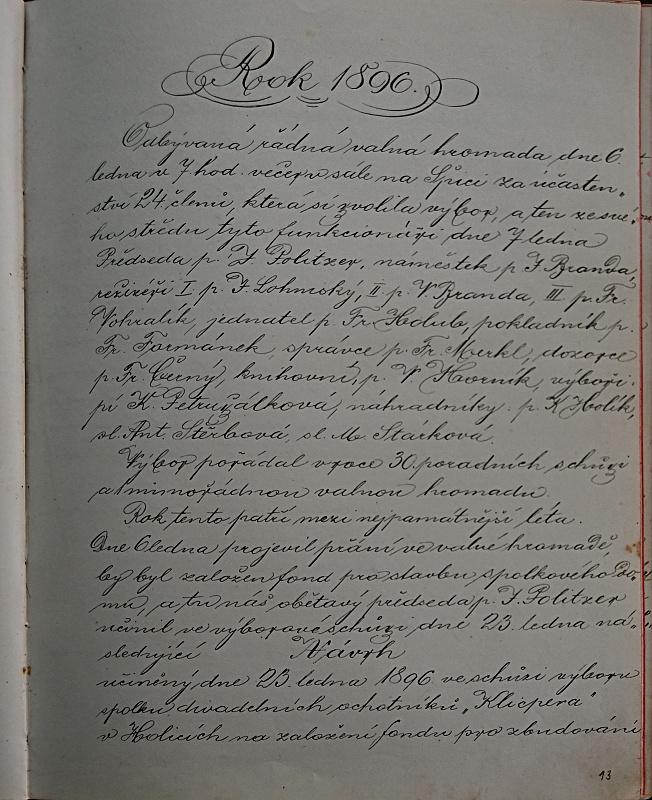 Rok 1896.
Odbývaná řádná valná hromada dne 6.
ledna v 7 hod. večer v sále na Špici za účasten„
ství 24. členů, která si zvolila výbor, a ten ze své„
ho středu tyto funkcionáři dne 7 ledna
Předseda p. J. Politzer, náměstek p J. Branda,
režiséři I p. J. Lohniský, II p. V. Branda, III p. Fr.
Vohralík, jednatel p. Fr. Holub, pokladník p.
Fr. Formánek, správce p. Fr. Merkl, dozorce
p. Fr. Černý, knihovní, p. V. Horník, výboři.
pí K. Petružálková, náhradníky. p. K. Holík,
sl. Ant. Štěrbová, sl. M. Stárková.
Výbor pořádal v roce 30. poradních schůzi
a 1 mimořádnou valnou hromadu.
Rok tento patří mezi nejpamátnější léta.
Dne 6 ledna projevil přání ve valné hromadě,
by byl založen fond pro stavbu spolkového Do„
mu, a tu náš obětavý předseda p. J. Politzer
učinil ve výborové schůzi dne 23. ledna ná„
sledující Návrh
učiněný dne 23. ledna 1896 ve schůzi výboru
spolku divadelních ochotníků „Klicpera"
v Holicích na založení fondu pro zbudování
13